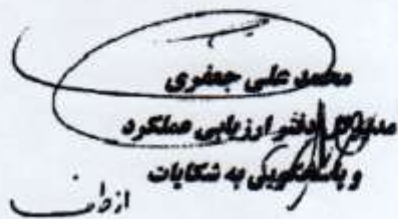 محمد علی جعفری
مدیرکل دفتر ارزیابی عملکرد
و پاسخگویی به شکایات
از طرف